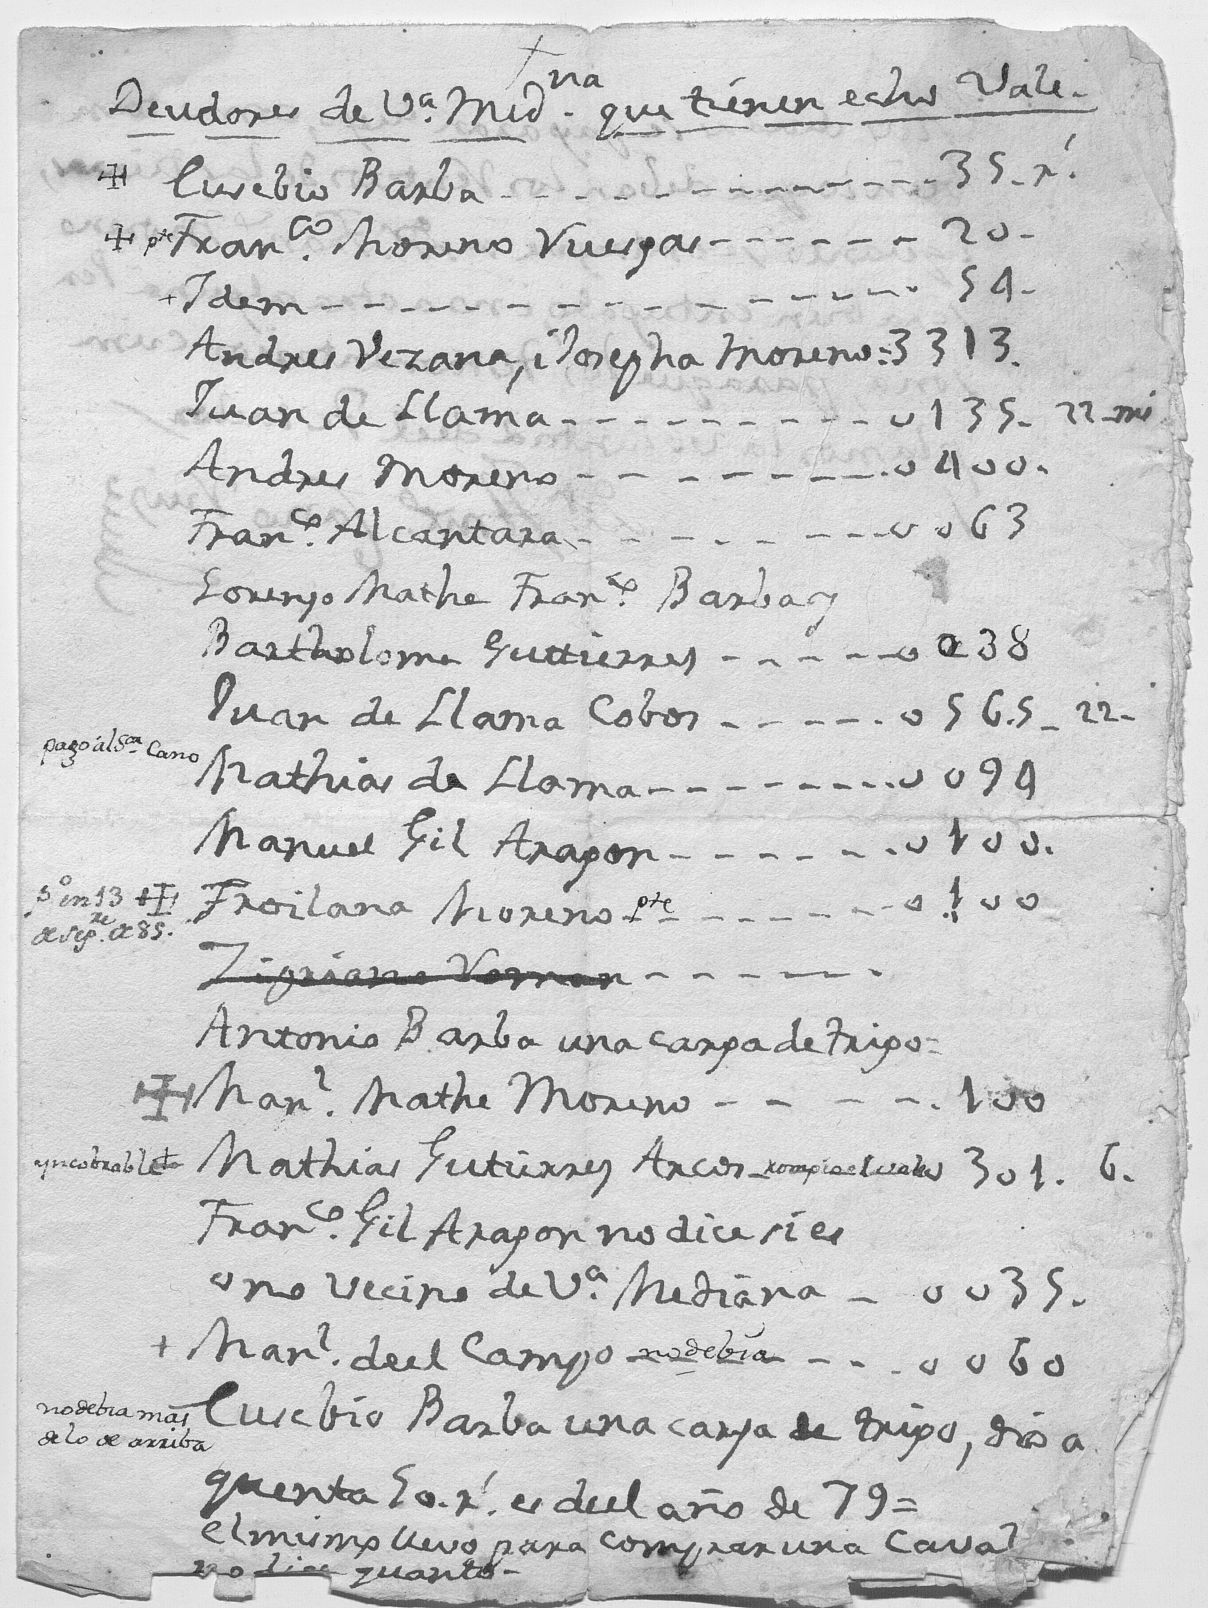 Deudores de Va. Medna. que tienen echo Vale.
Eusebio Barba 35. r.
pte Franco. Moreno Vuergas 20
Idem 54
Andres Vezana, i Josepha Moreno = 3313.
Juan de Llama 0135. 22 ms
Andres Moreno 0400.
Franco. Alcantara 0063
Lorenzo Mathe Franco. Barba y
Bartholome Guttierres 0038
Juan de Llama Cobos 0565 22
pago al Sa. Cano
Mathias de Llama 0094
Manuel Gil Aragon 0100.
po en 13
de Sepre. de 85.
Froilana Moreno pte 0100
Zipriano
Antonio Barba una carga de trigo =
Manl. Mathe Moreno 100
yncobrable
Mathias Gutierres Arcos rompiose el vale 301. 6.
Franco. Gil Aragon no dice si es
o no vecino de Va. Mediana 0035.
Manl. deel Campo no debia 0060
no debia mas
de lo de arriba
Eusebio Barba una carga de trigo, dio a
quenta 60. r. es deel año de 79 =
el mismo llevo para comprar una Caval
no dice quanto